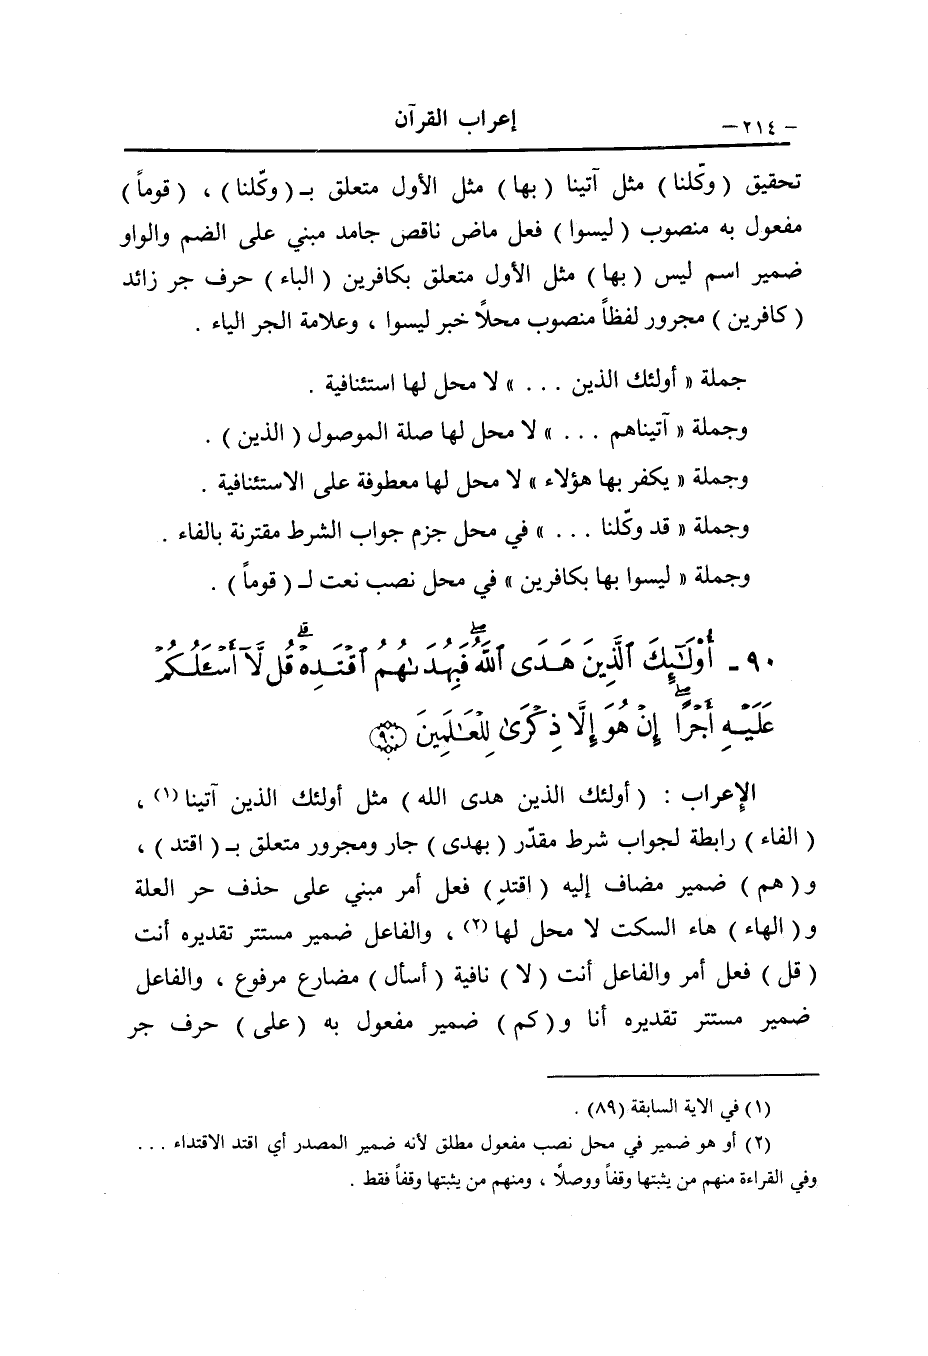 - ٢١٤ -
إعراب القرآن
تحقيق ( وكّلنا ) مثل آتينا ( بها ) مثل الأول متعلق بـ ( وكّلنا ) ، ( قوماً )
مفعول به منصوب ( ليسوا ) فعل ماض ناقص جامد مبني على الضم والواو
ضمير اسم ليس ( بها ) مثل الأول متعلق بكافرين ( الباء ) حرف جر زائد
( كافرين ) مجرور لفظاً منصوب محلاً خبر ليسوا ، وعلامة الجر الياء .
جملة « أولئك الذين . . . » لا محل لها استئنافية .
وجملة « آتيناهم . . . » لا محل لها صلة الموصول ( الذين ) .
وجملة « يكفر بها هؤلاء » لا محل لها معطوفة على الاستئنافية .
وجملة « قد وكّلنا . . . » في محل جزم جواب الشرط مقترنة بالفاء .
وجملة « ليسوا بها بكافرين » في محل نصب نعت لـ ( قوماً ) .
٩٠ - أُوْلَٰٓئِكَ ٱلَّذِينَ هَدَى ٱللَّهُ ۖ فَبِهُدَىٰهُمُ ٱقْتَدِهْ ۗ قُل لَّآ أَسْـَٔلُكُمْ
عَلَيْهِ أَجْرًا ۖ إِنْ هُوَ إِلَّا ذِكْرَىٰ لِلْعَٰلَمِينَ ﴿٩٠﴾
الإعراب : ( أولئك الذين هدى الله ) مثل أولئك الذين آتينا (١) ،
( الفاء ) رابطة لجواب شرط مقدّر ( بهدى ) جار ومجرور متعلق بـ ( اقتد ) ،
و ( هم ) ضمير مضاف إليه ( اقتدِ ) فعل أمر مبني على حذف حر العلة
و ( الهاء ) هاء السكت لا محل لها (٢) ، والفاعل ضمير مستتر تقديره أنت
( قل ) فعل أمر والفاعل أنت ( لا ) نافية ( أسأل ) مضارع مرفوع ، والفاعل
ضمير مستتر تقديره أنا و ( كم ) ضمير مفعول به ( على ) حرف جر
(١) في الاية السابقة (٨٩) .
(٢) أو هو ضمير في محل نصب مفعول مطلق لأنه ضمير المصدر أي اقتد الاقتداء . . .
وفي القراءة منهم من يثبتها وقفاً ووصلاً ، ومنهم من يثبتها وقفاً فقط .